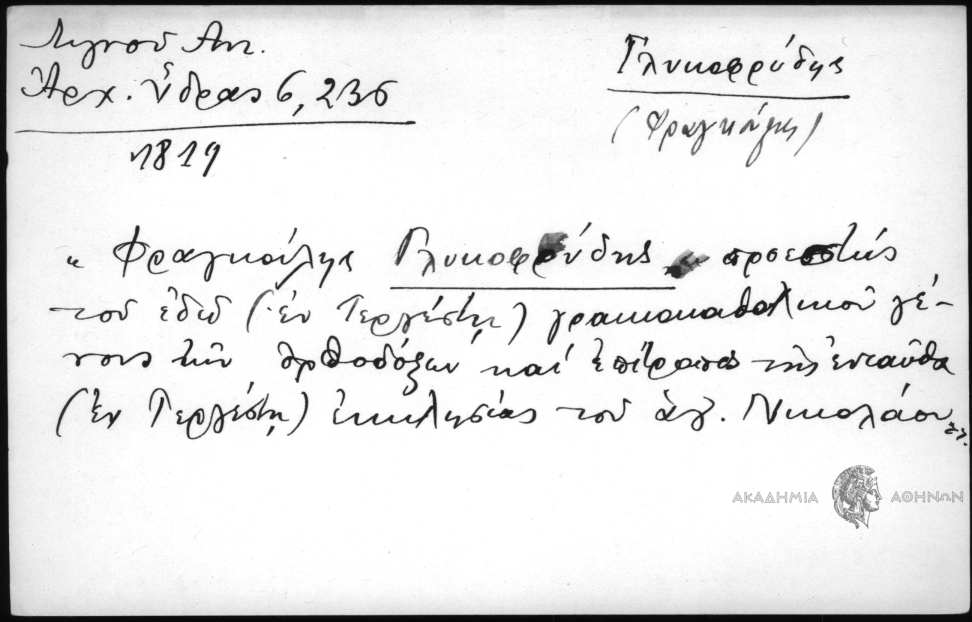 Λιγνοῦ Αντ.
Ἀρχ. Ὕδρας 6, 236
1819
Γλυκοφρύδης
(Φραγκούλης)
"Φραγκούλης Γλυκοφρύδης προεστὼς
τοῦ ἐδῶ (ἐν Τεργέστῃ) γραικοκαθολικοῦ γέ-
νους τῶν ὀρθοδόξων καὶ ἐπίτροπος τῆς ἐνταῦθα
(ἐν Τεργέστῃ) ἐκκλησίας τοῦ ἁγ. Νικολάου
ΑΚΑΔΗΜΙΑ ΑΘΗΝΩΝ